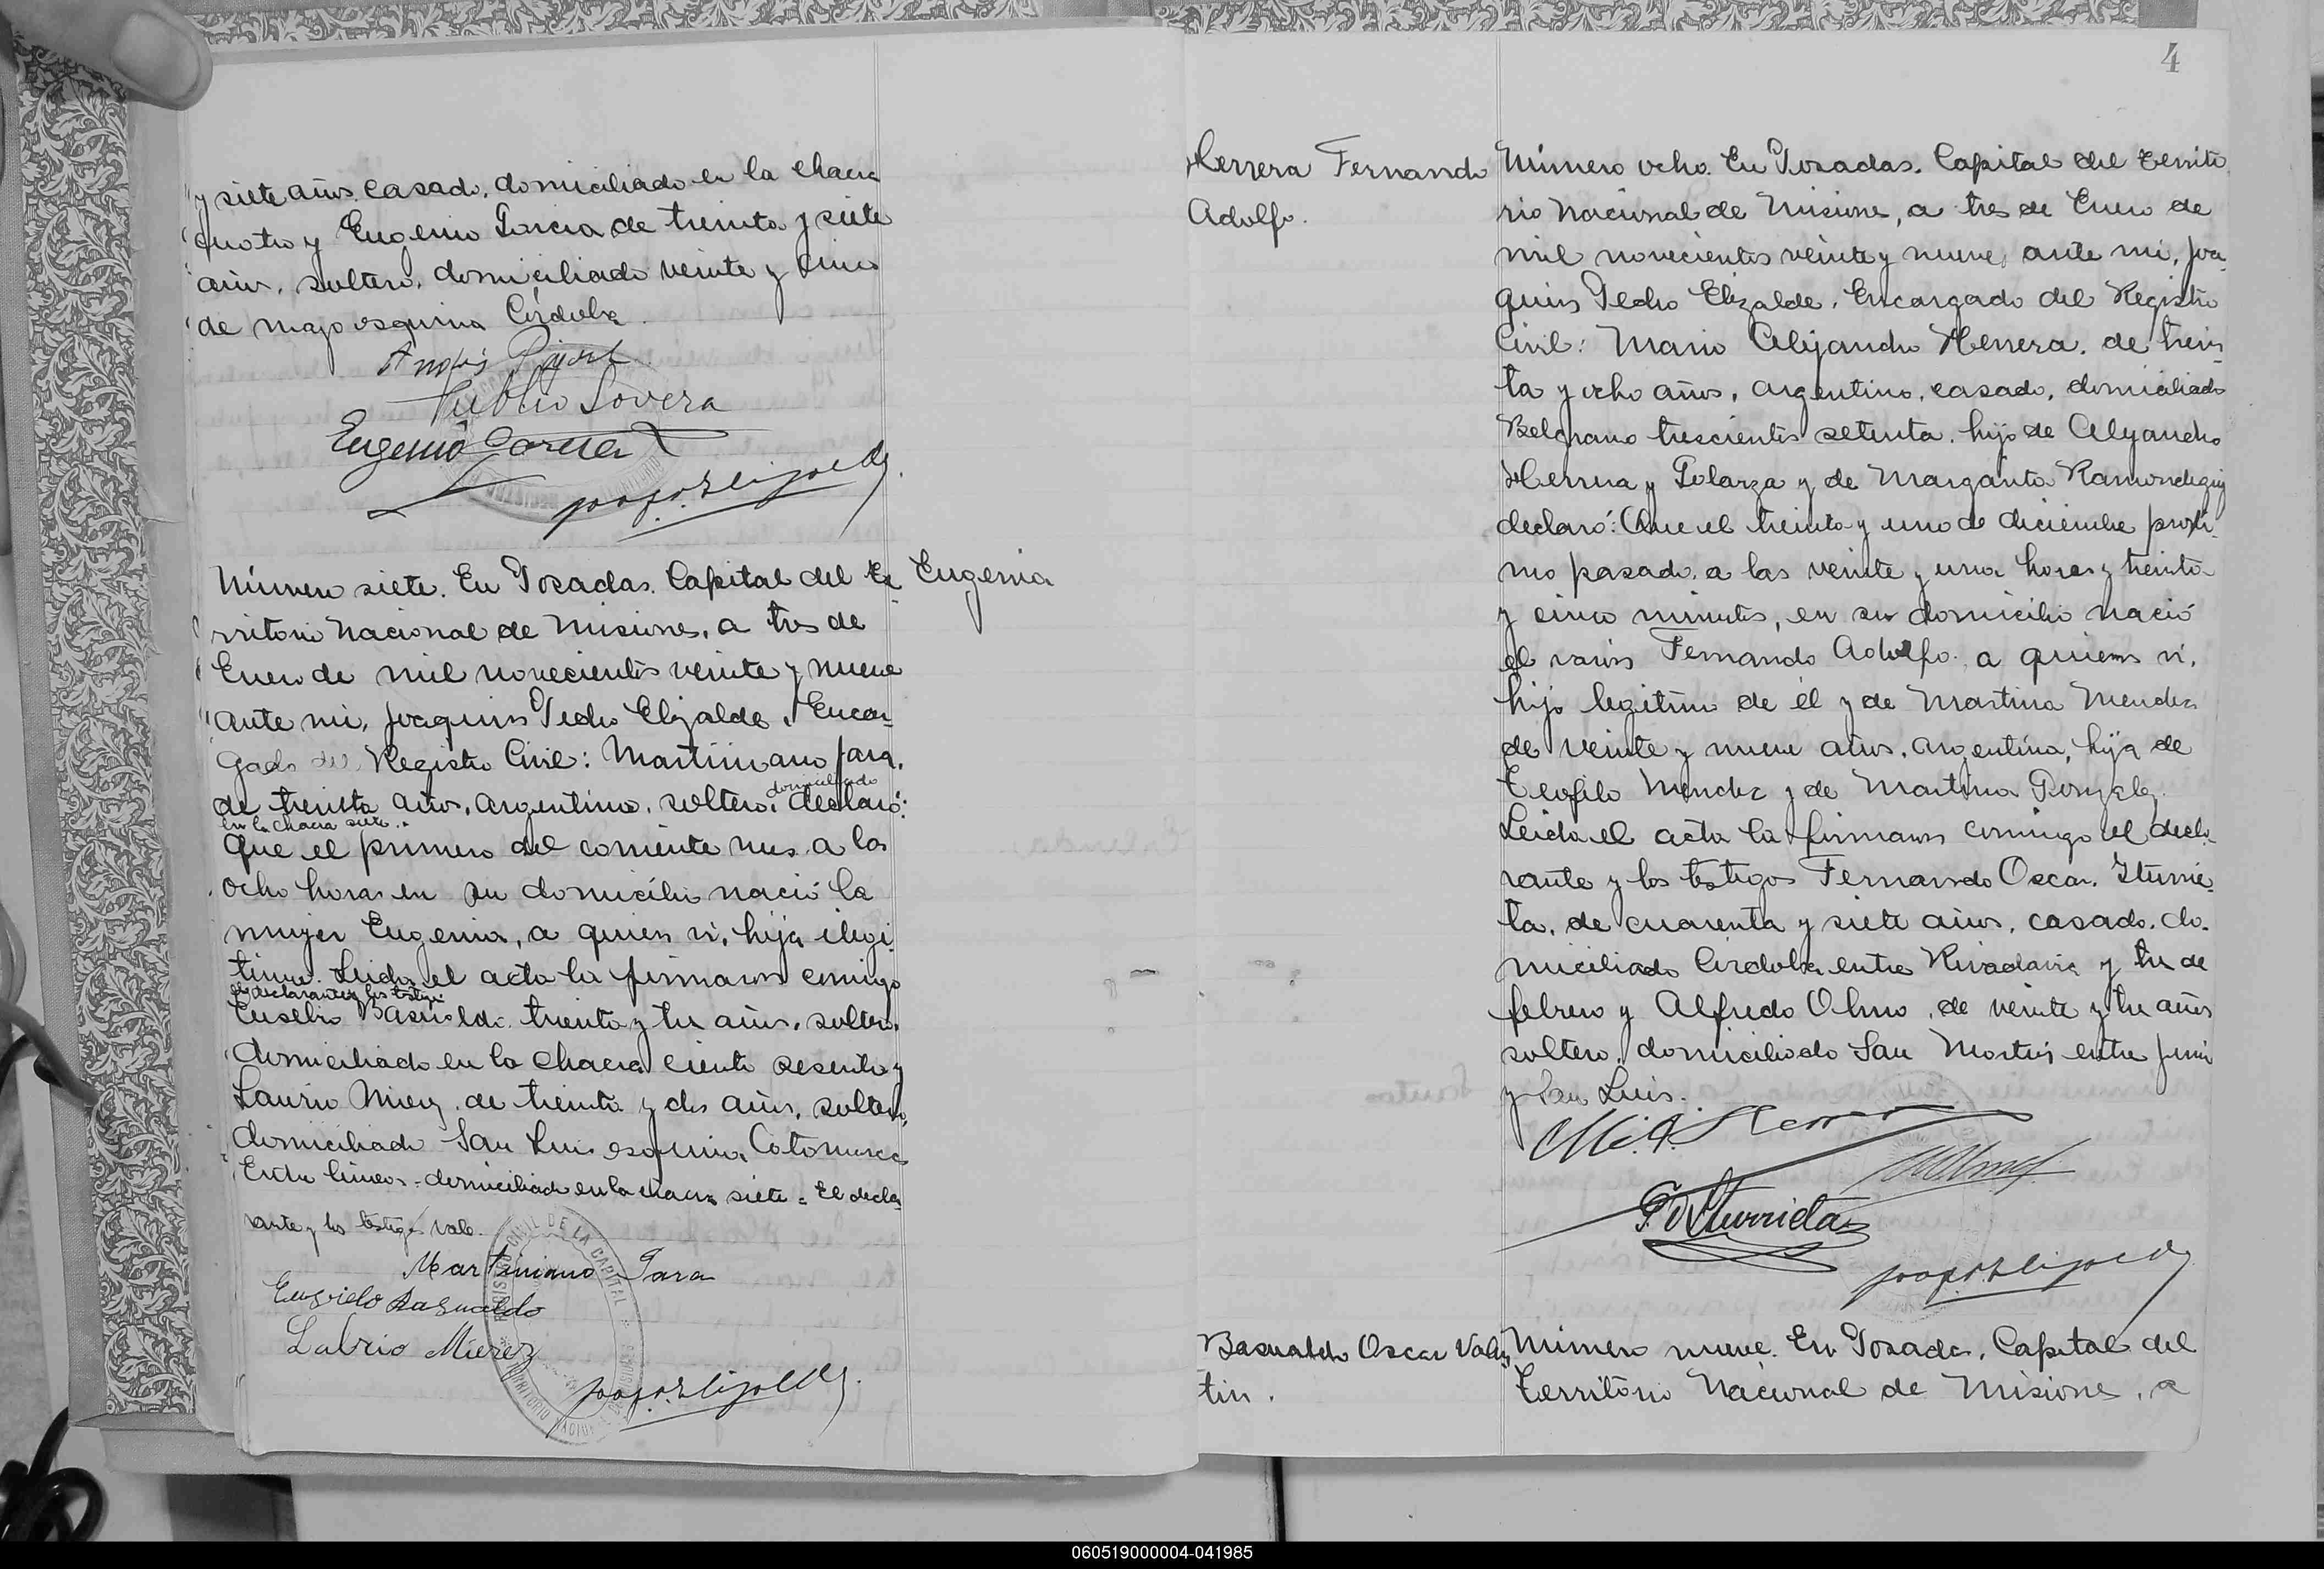 y siete años, casado, domiciliado en la chacra
cuatro y Eugenio Garcia de treinta y siete
años, soltero, domiciliado veinte y cinco
de mayo esquina Córdoba.
Publio Lovera
Eugenio Garcia
Número siete. En Posadas, Capital del Te
Eugenia
rritorio Nacional de Misiones, a tres de
Enero de mil novecientos veinte y nueve
ante mi, Joaquin Pedro Elizalde, Encar-
gado del Registro Civil: Martiniano Jara,
domiciliado
de treinta años, argentino, soltero, declaró:
en la chacra siete
Que el primero del corriente mes a las
ocho horas en su domicilio nació la
mujer Eugenia, a quien ví, hija ilegi-
tima. Leida el acta la firmaron conmigo
el declarante y los testigos
Eusebio Basualdo, treinta y tres años, soltero,
domiciliado en la chacra ciento sesenta y
Laurio Mierez, de treinta y dos años, soltero,
domiciliado San Luis esquina Catamarca
Entre lineas = domiciliado en la chacra siete = El decla
rante y los testigos vale.
Martiniano Jara
Eusevio Basualdo
Laurio Mierez
REGISTRO CIVIL DE LA CAPITAL
4
Herrera Fernando
Adolfo.
Número ocho. En Posadas, Capital del Territo
rio Nacional de Misiones, a tres de Enero de
mil novecientos veinte y nueve, ante mi, Joa-
quin Pedro Elizalde, Encargado del Registro
Civil: Mario Alejandro Herrera, de trein-
ta y ocho años, argentino, casado, domiciliado
Belgrano trescientos setenta, hijo de Alejandro
Herrera y de Margarita
declaró: Que el treinta y uno de diciembre proxi-
mo pasado, a las veinte y una horas y treinta
y cinco minutos, en su domicilio nació
el varón Fernando Adolfo, a quien ví,
hijo legitimo de él y de Martina Mendez
de veinte y nueve años, argentina, hija de
Teofilo Mendez y de Martina Gonzalez.
Leida el acta la firmaron conmigo el decla-
rante y los testigos Fernando Oscar Iturrie-
ta, de cuarenta y siete años, casado, do-
miciliado Córdoba entre Rivadavia y tres de
febrero y Alfredo Olmo, de veinte y tres años
soltero, domiciliado San Martin entre Junin
y San Luis.
M. A. Herrera
F. O. Iturrieta
Basualdo Oscar Valen
tin.
Número nueve. En Posadas, Capital del
Territorio Nacional de Misiones, a
060519000004-041985